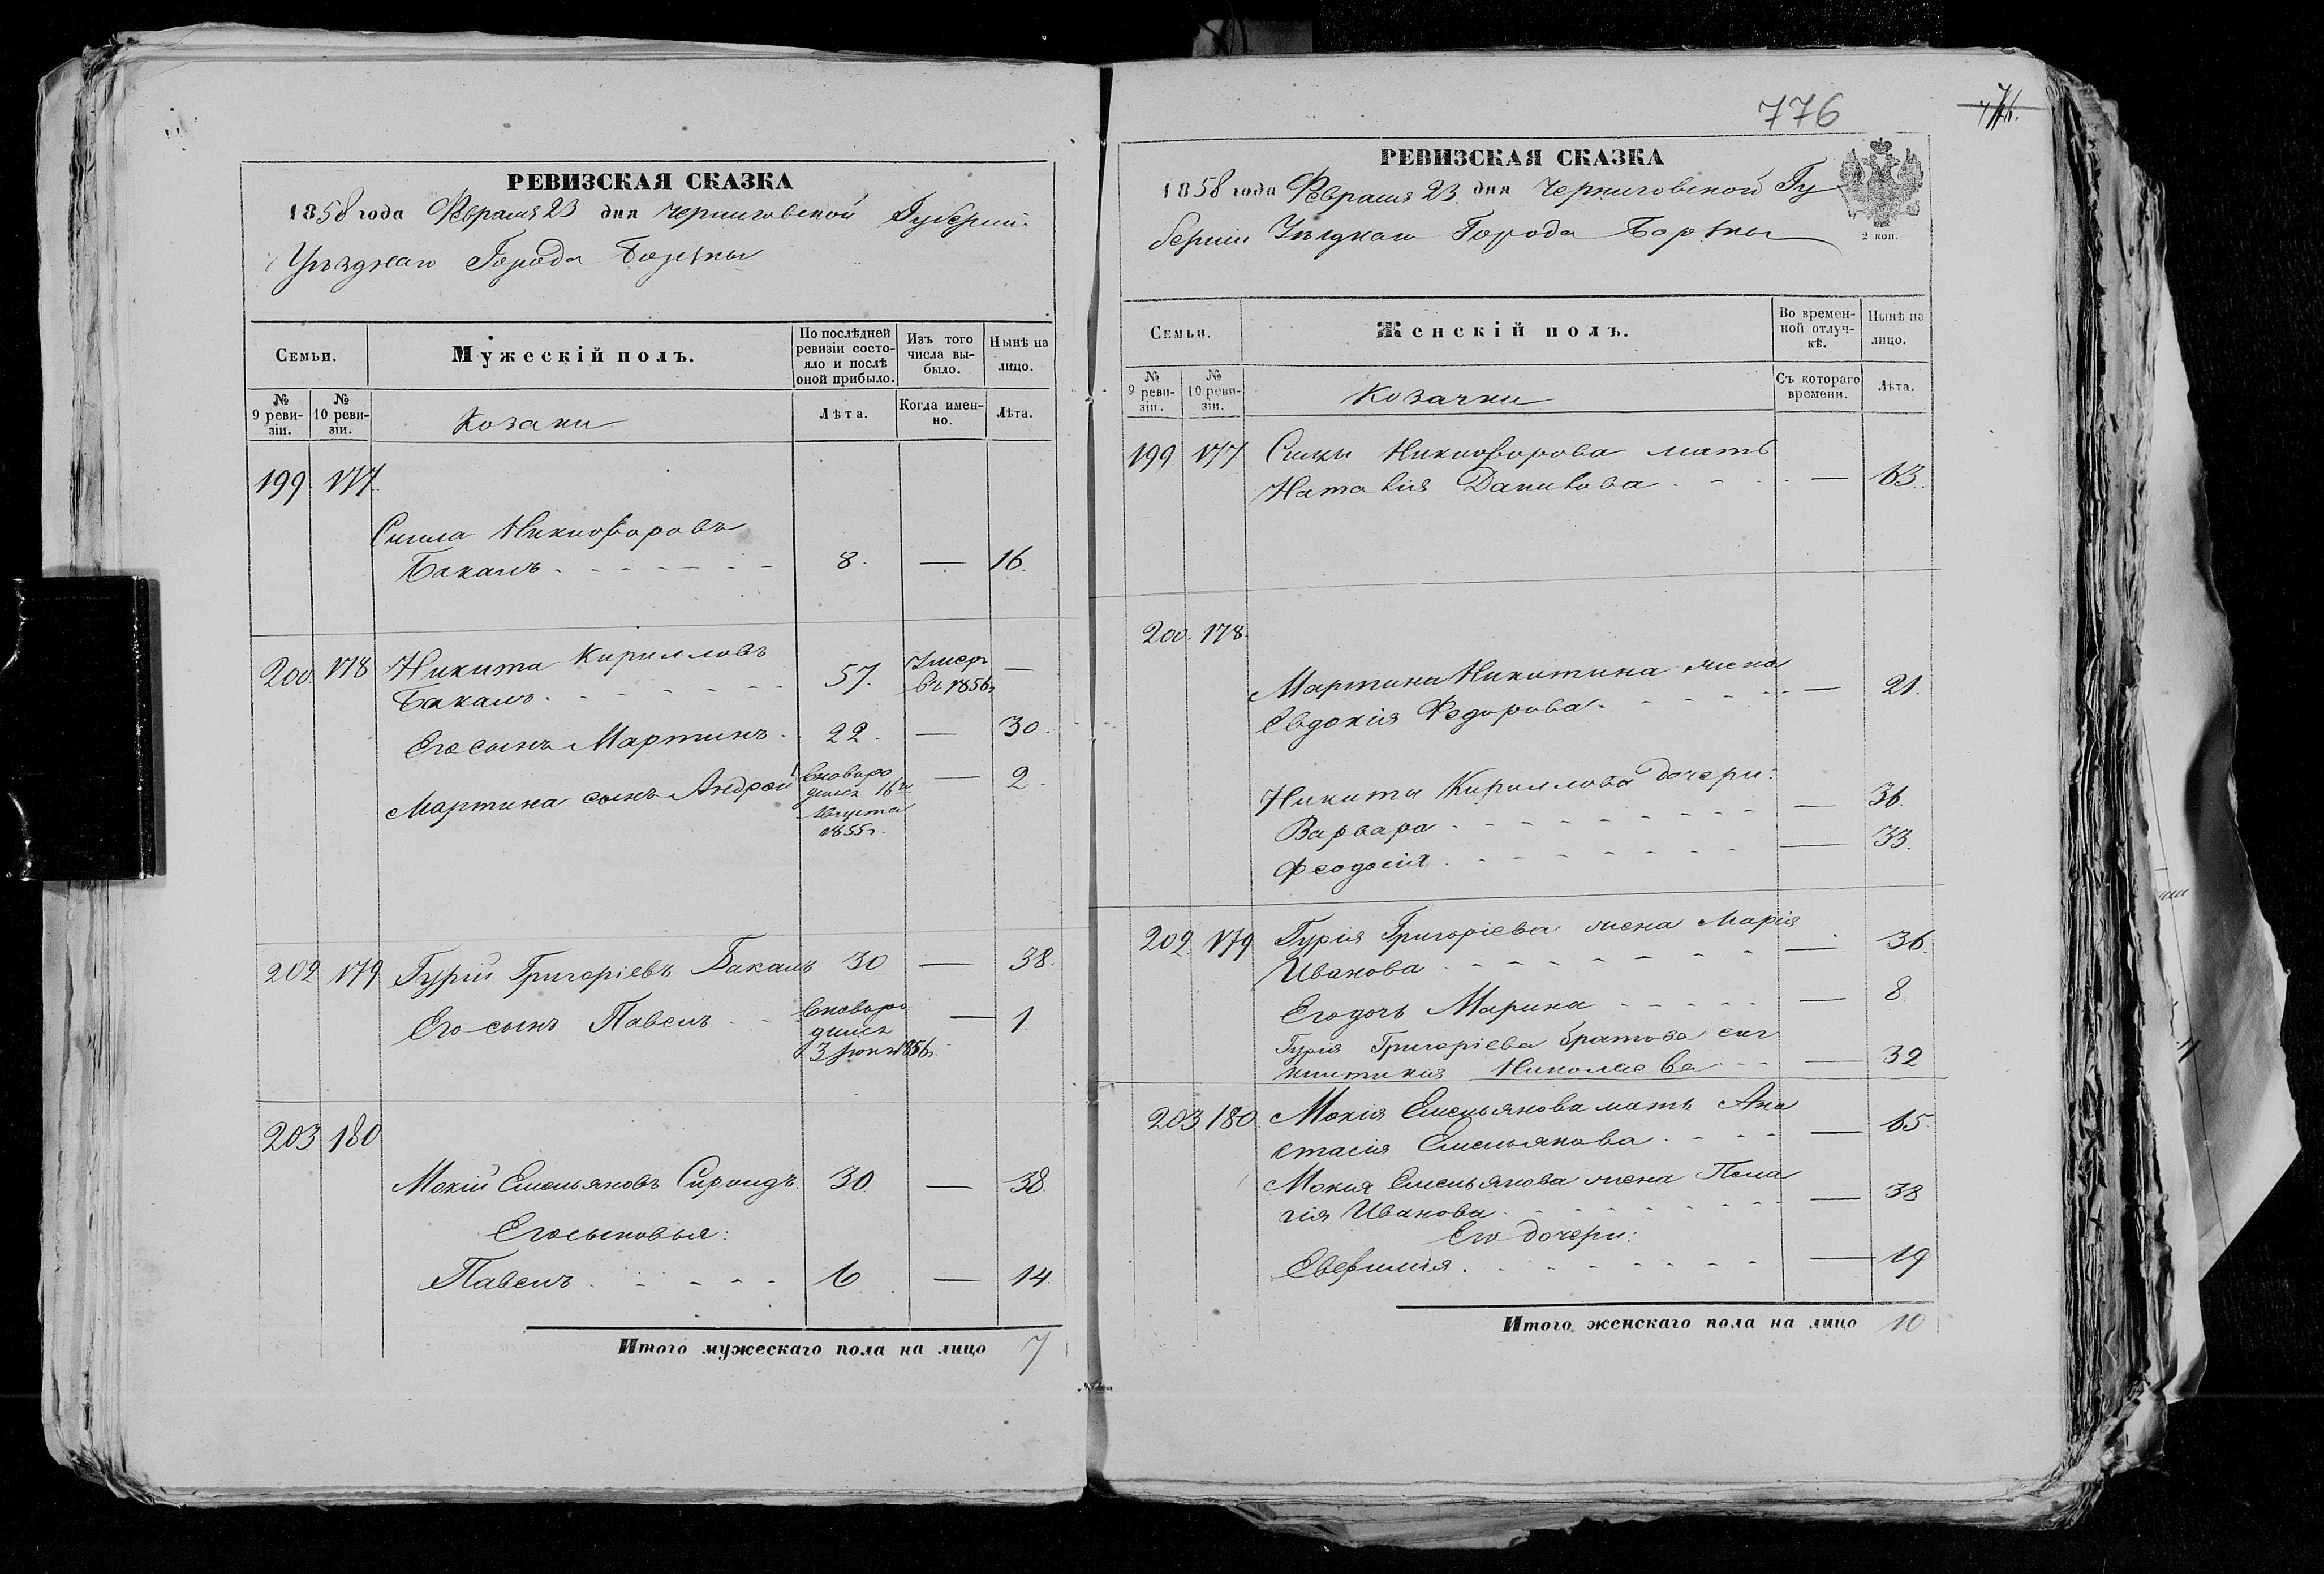 РЕВИЗСКАЯ СКАЗКА
1858 года Февраля 23 дня Черниговской Губерніи
Уѣзднаго Города Борзны
Семьи.
Мужескій полъ.
По послѣдней ревизіи состо-
яло и послѣ
оной прибыло.
Изъ того
числа вы-
было.
Нынѣ на
лицо.
№
9 реви-
зіи.
№
10 реви-
зіи.
Козаки
Лѣта.
Когда имен-
но.
Лѣта.
199. 177.
Сигла Никифоровъ
Бакалъ 8. — 16.
200. 178 Никита Кирилловъ
Бакалъ 57. Умеръ въ 1856г —
Его сынъ Мартинъ 22. — 30.
Мартина сынъ Андрей вноворо
дился 16го
Августа
1855г. — 2.
202 179 Гурій Григоріевъ Бакалъ 30 — 38.
Его сынъ Павелъ вноворо
дился
3 Іюня 1856г. — 1.
203 180
Мокій Емельяновъ 30. — 38.
Его сыновья:
Павелъ 6. — 14.
Итого мужескаго пола на лицо 7
776
РЕВИЗСКАЯ СКАЗКА
1858 года Февраля 23. дня Черниговской Гу
берніи Уѣзднаго Города Борзны
2 коп.
Семьи.
Женскій полъ.
Во времен-
ной отлуч-
кѣ.
Нынѣ на
лицо.
№
9 реви-
зіи.
№
10 реви-
зіи.
Козачки
Съ котораго
времени.
Лѣта.
199. 177 Никифорова мать
Наталія Данилова — 63.
200. 178.
Мартина Никитина жена
Евдокія Федорова — 21.
Никита Кириллова дочери:
Варвара — 36.
Феодосія — 33.
202 179 Гурія Григоріева жена Марія
Иванова — 36.
Его дочь Марина — 8.
Гурія Григоріева братова
Николаева — 32
203 180 Мокія Емельянова мать Ана
стасія Емельянова — 65.
Мокія Емельянова жена Пела
гія Иванова — 38
Его дочери:
Евфимія — 19
Итого женскаго пола на лицо 10